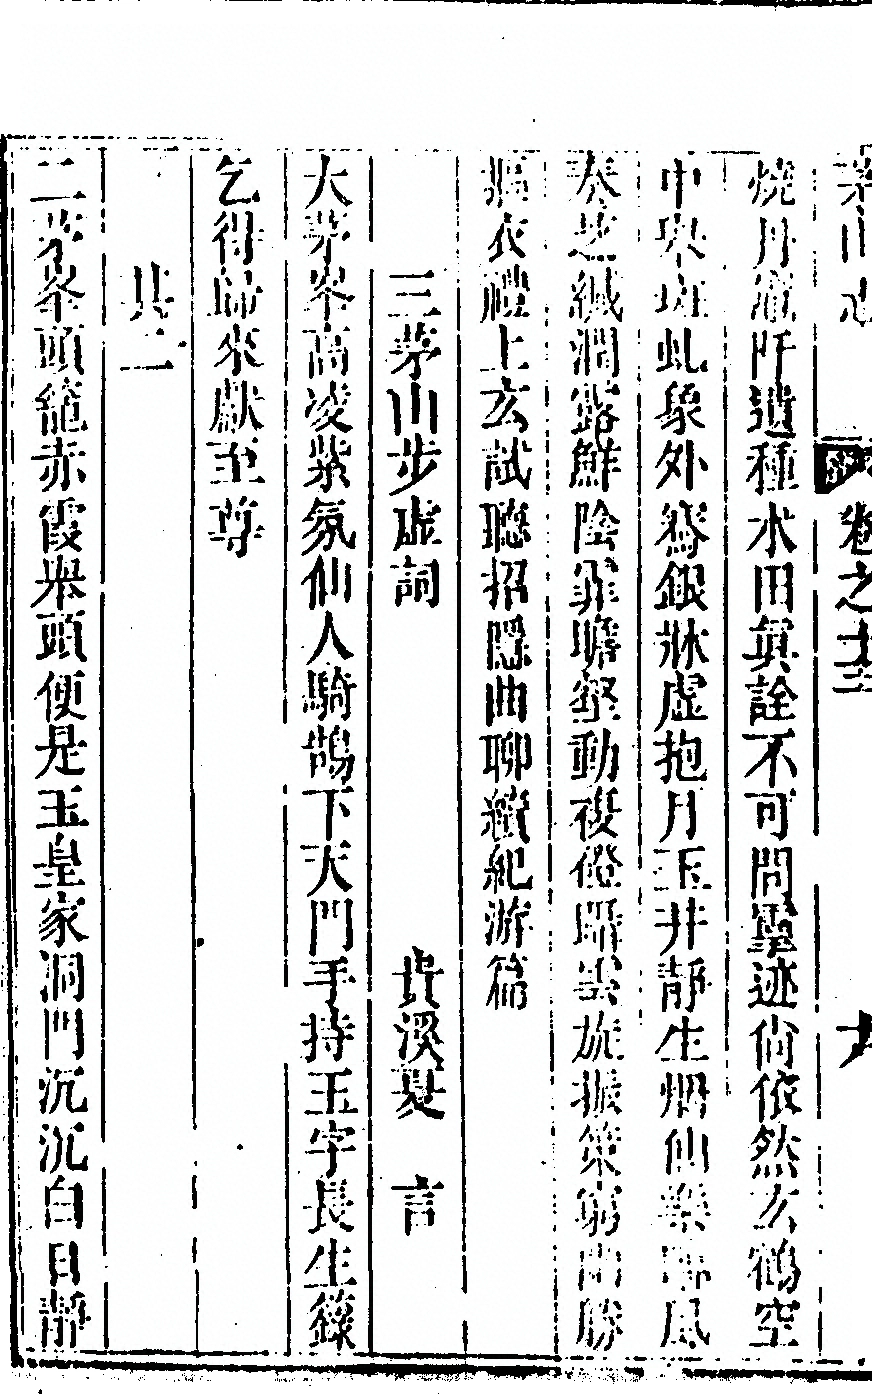 茅山志 卷之十三 九
燒丹灌阡遺種水田眞詮不可問靈迹尙依然玄鶴空
中舉斑虬象外騫銀牀虛抱月玉井靜生烟仙樂聯風
奏芝緘潤露鮮陰霏瞻壑動複磴躡雲旋振策窮幽勝
摳衣禮上玄試聽招隱曲聊續紀游篇
三茅山步虛詞 貴溪夏 言
大茅峯高凌紫氛仙人騎鵠下天門手持玉字長生籙
乞得歸來獻至尊
其二
二茅峯頭籠赤霞舉頭便是玉皇家洞門沉沉白日靜